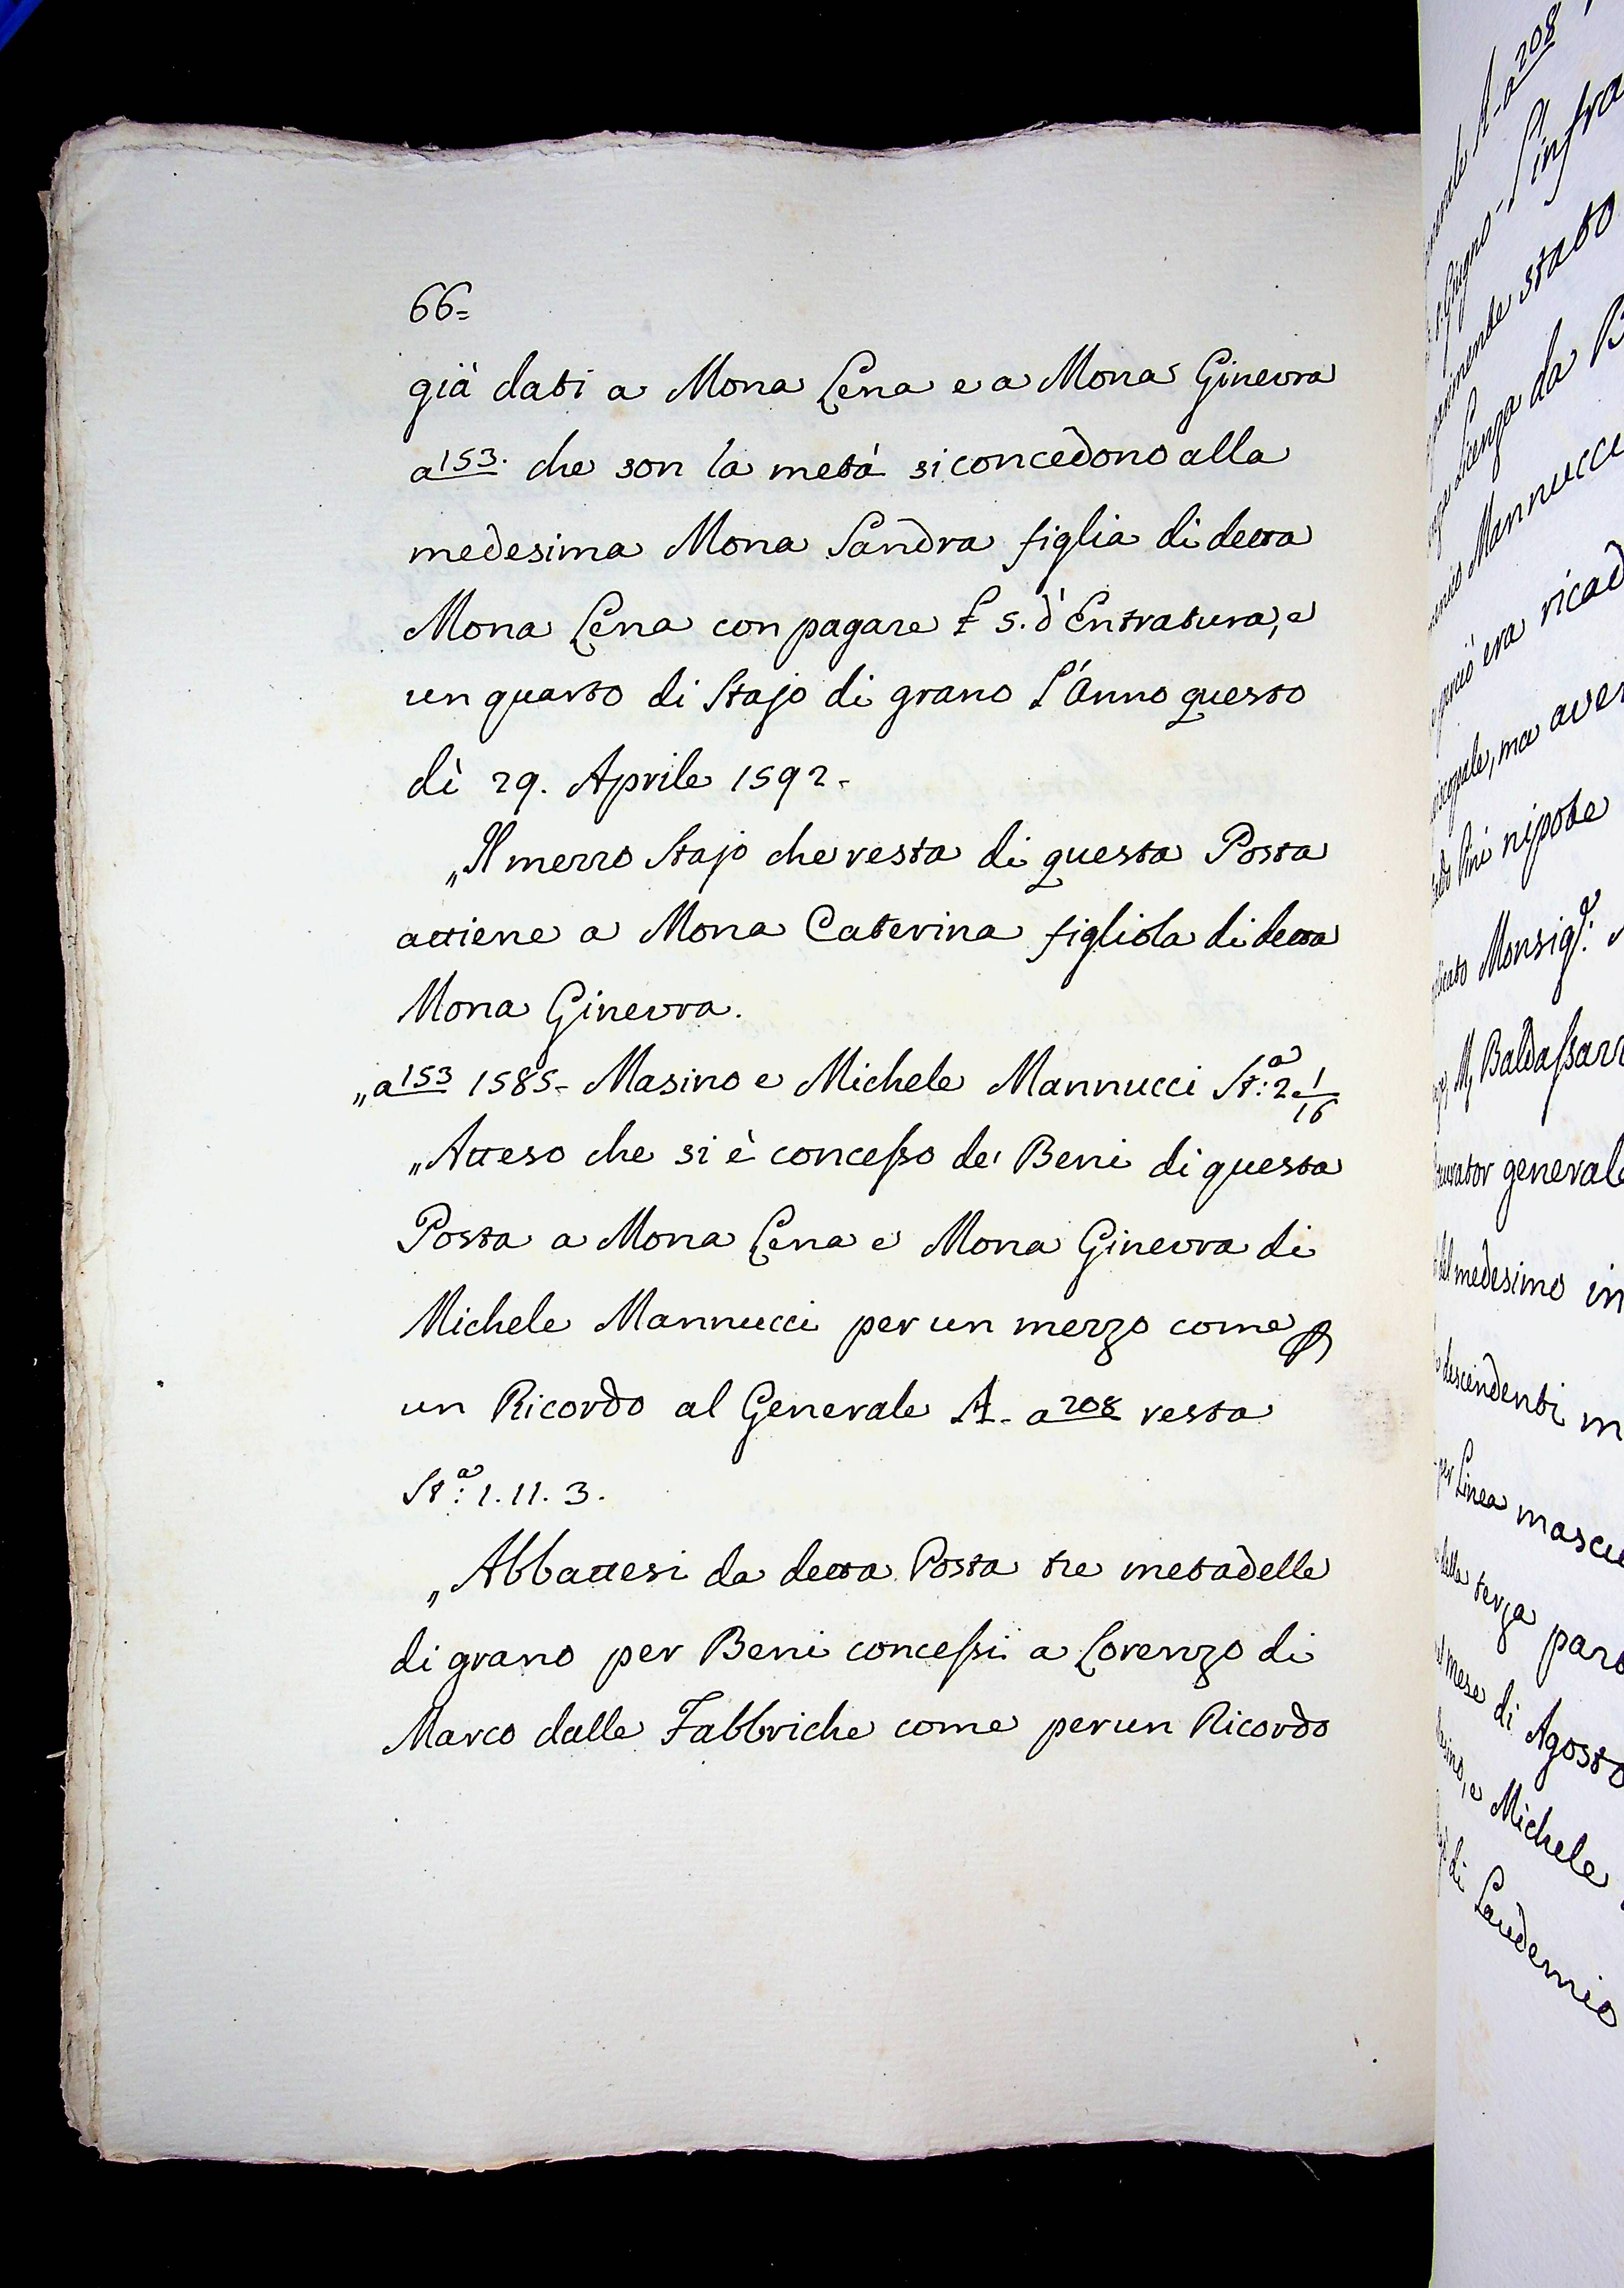 66=
già dati a Mona Lena e a Mona Ginevra
a 153. che son la metà si concedono alla
medesima Mona Sandra figlia di detta
Mona Lena con pagare £ 5. d'Entratura, e
un quarto di Stajo di grano l'Anno questo
dì 29. Aprile 1592-
„Il mezzo Stajo che resta di questa Posta
attiene a Mona Caterina figliola di detta
Mona Ginevra.
„a 153 1585- Masino e Michele Mannucci St:a 2 1/16
„Atteso che si è concesso de' Beni di questa
Posta a Mona Lena e Mona Ginevra di
Michele Mannucci per un mezzo come p
un Ricordo al Generale A- a 208 resta
St:a 1. 11. 3.
„Abbattesi da detta Posta tre metadelle
di grano per Beni concessi a Lorenzo di
Marco dalle Fabbriche come per un Ricordo
208
infra
stato
Licenza da
Mannucci
era
ma
Pini nipote
Monsig.r
M, Baldassarr
generale
medesimo in
descendenti
per Linea
terza
mese di Agosto
Michele
di Laudemio